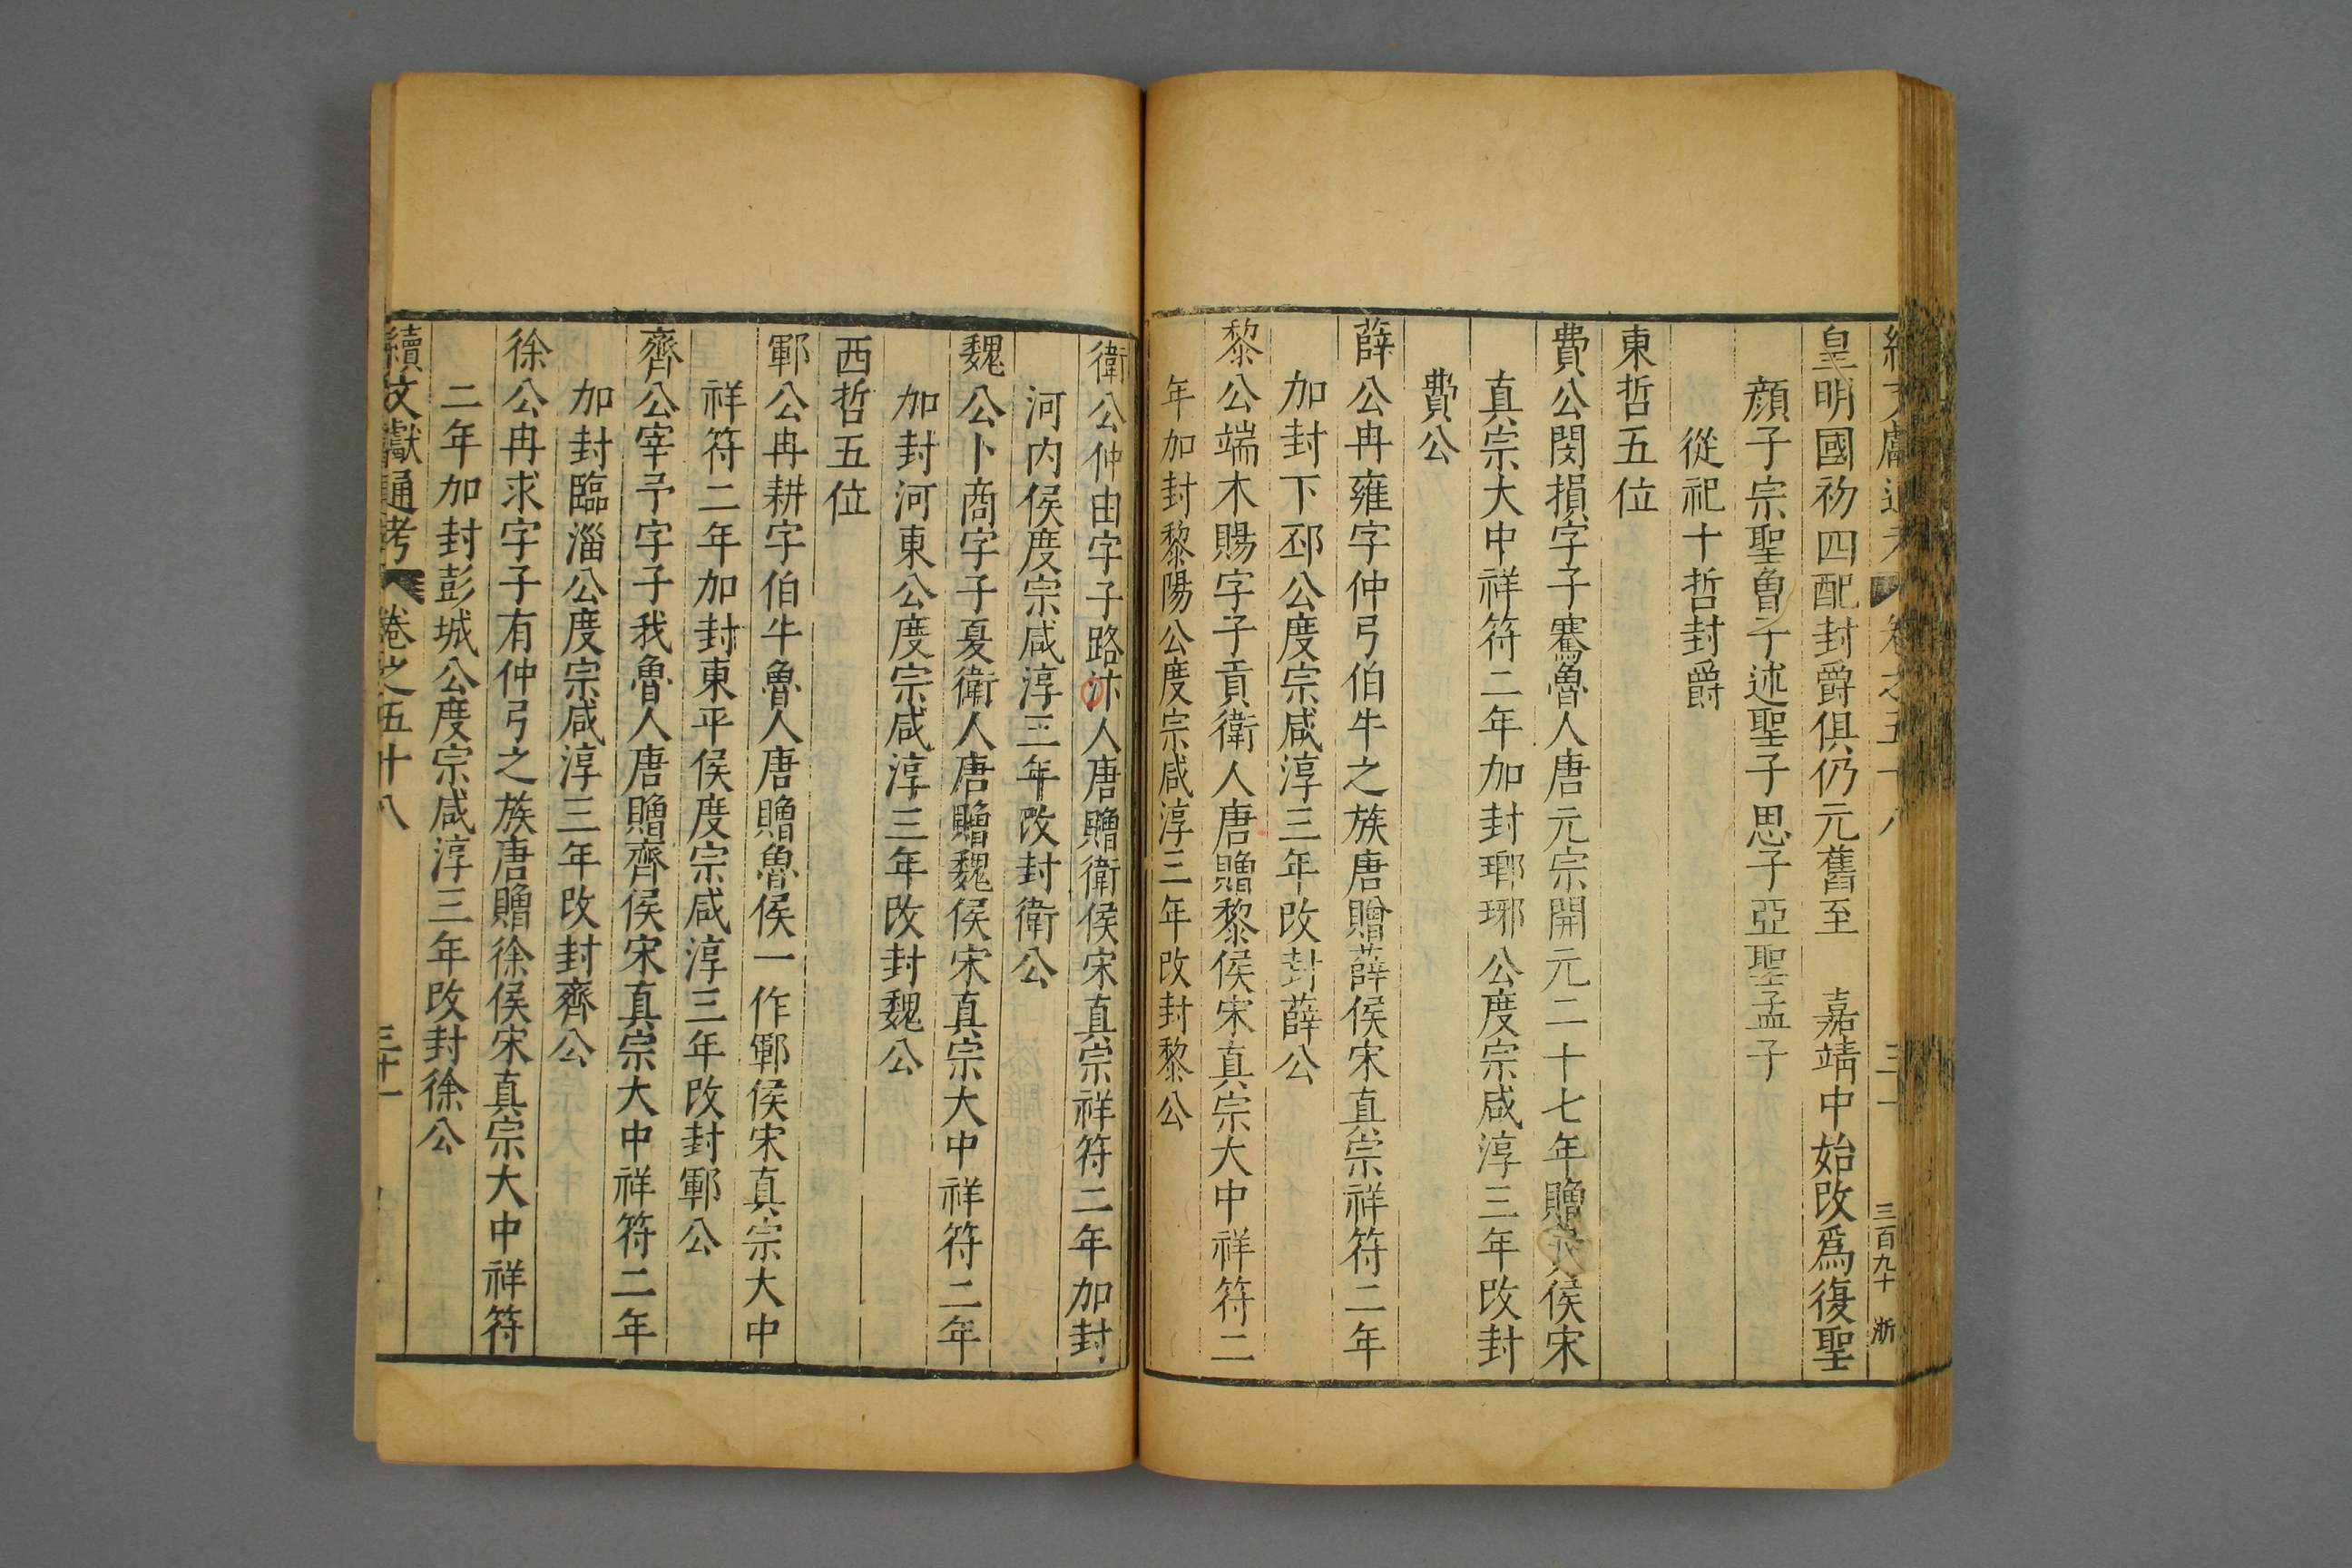 皇明國初四配封爵俱仍元舊至　嘉靖中始改爲復聖
顔子宗聖魯子述聖子思子亞聖孟子
從祀十哲封爵
東哲五位
費公閔損字子騫魯人唐元宗開元二十七年贈侯宋
真宗大中祥符二年加封瑯琊公度宗咸淳三年改封
費公
薛公冉雍字仲弓伯牛之族唐贈薛侯宋真宗祥符二年
加封下邳公度宗咸淳三年改封薛公
黎公端木賜字子貢衛人唐贈黎侯宋真宗大中祥符二
年加封黎陽公度宗咸淳三年改封黎公
衛公仲由字子路汴人唐贈衛侯宋真宗祥符二年加封
河内侯度宗咸淳三年改封衛公
魏公卜商字子夏衛人唐贈魏侯宋真宗大中祥符二年
加封河東公度宗咸淳三年改封魏公
西哲五位
鄆公冉耕字伯牛魯人唐贈魯侯一作鄆侯宋真宗大中
祥符二年加封東平侯度宗咸淳三年改封鄆公
齊公宰予字子我魯人唐贈齊侯宋真宗大中祥符二年
加封臨淄公度宗咸淳三年改封齊公
徐公冉求字子有仲弓之族唐贈徐侯宋真宗大中祥符
二年加封彭城公度宗咸淳三年改封徐公
續文獻通考　卷之五十八　三十一
三百九十　浙